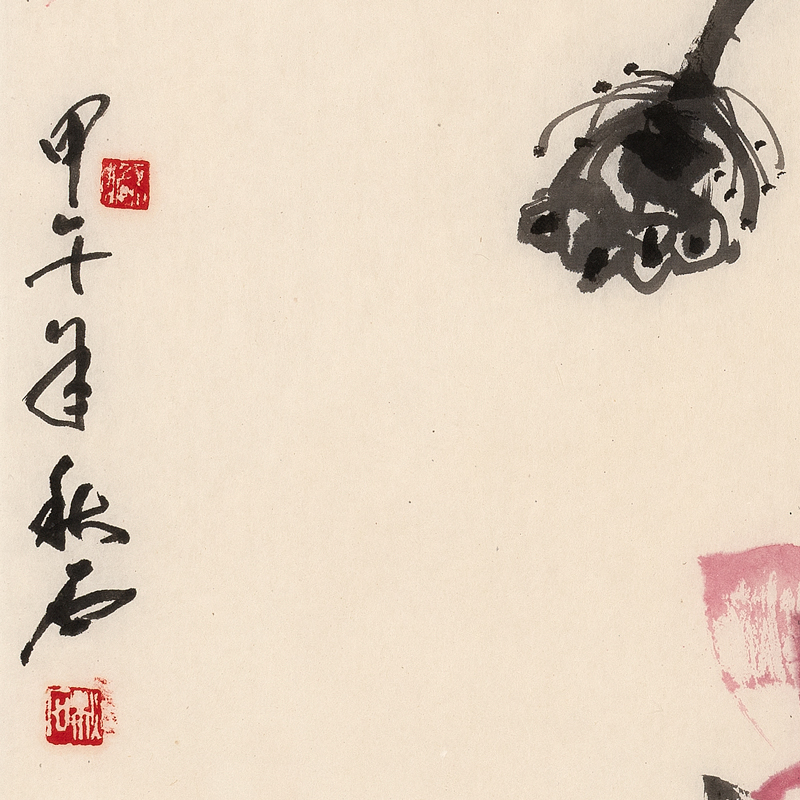 甲午年秋石